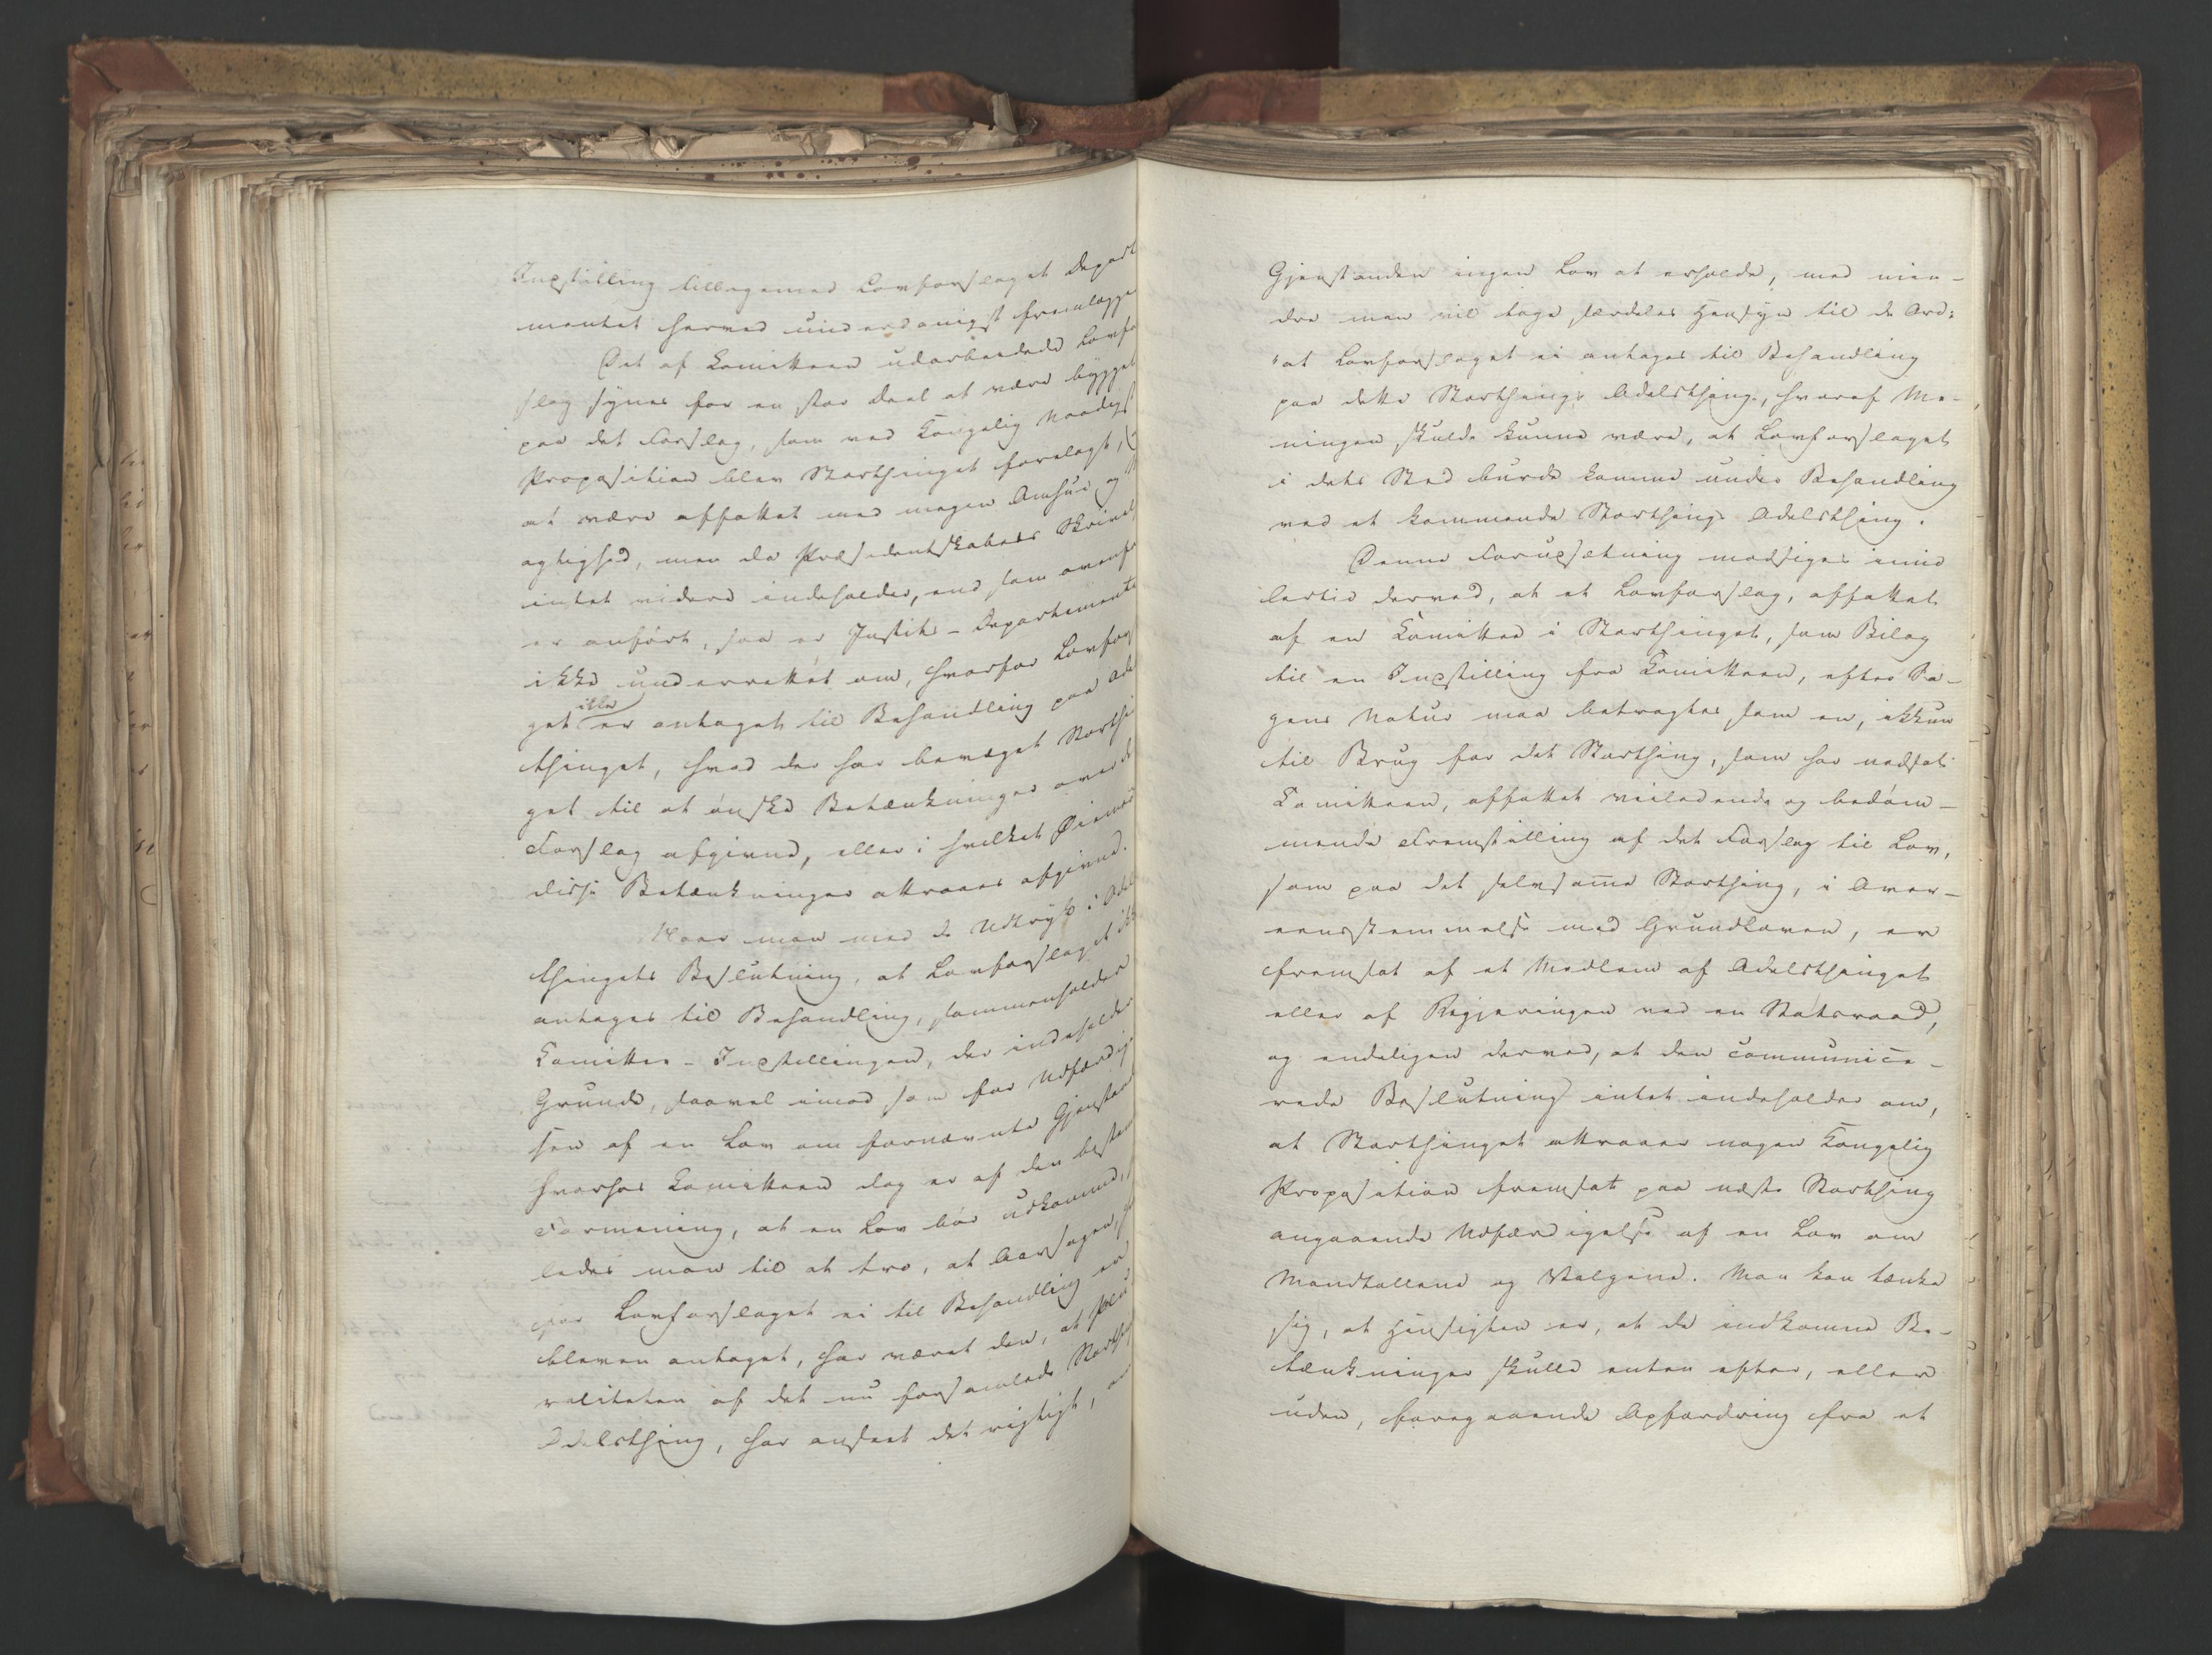 Indstilling tillegemed Lovforslaget Depart
mentet herved underdanigst fremlægge
Det af Komitteen udarbeidede Lovfo
slag synes for en stor Deel at være bygget
paa det Forslag, som ved Kongelig naadigst
Proposition blev Storthinget forelagt,
at være affattet med megen Omhue og
agtighed, men da Præsidentskabets Skrivel
intet videre indeholder, end som ovenfor
er anført, saa er Justits-Departemente
ikke underrettet om, hvorfor Lovfor
get ikke er antaget til Behandling paa Ode
thinget, hvad der har bevæget Storthi
get til at ønske Betænkninger over de
Forslag afgivne, eller i hvilket Øiemed
disse Betænkninger attraaes afgivne.
Naar man med de Udtryk i Odel
thingets Beslutning, at Lovforslaget ikk
antages til Behandling, sammenholder
Komittee-Indstillingen, der indeholder
Grunde, saavel imod som for Udfærdigel
sen af en Lov om fornævnte Gjenstand
hvorhos Komitteen dog er af den bestem
Formening, at en Lov bør udkomme,
ledes man til at troe, at Aarsagen,
for Lovforslaget ei til Behandling er
bleven antaget, har været den, at Plu
raliteten af det nu forsamlede Storthi
Odelsthing, har anseet det rigtigt, om
Gjenstanden ingen Lov at erholde, med min-
dre man vil tage særdeles Hensyn til de Ord:
"at Lovforslaget ei antages til Behandling
paa dette Storthings Odelsthing, hvoraf Me-
ningen skulde kunne være, at Lovforslaget
i dets Sted burde komme under Behandling
ved et kommende Storthings Odelsthing.
Denne Forudsætning modsiges imid
lertid derved, at et Lovforslag, affattet
af en Komittee i Storthinget, som Bilag
til en Indstilling fra Komitteen, efter Sa-
gens Natur maa betragtes som en, ikkun
til Brug for det Storthing, som har nedsat
Komitteen, affattet veiledende og bedøm-
mende Fremstilling af det Forslag til Lov,
som paa det selvsamme Storthing, i Over-
eensstemmelse med Grundloven, er
fremsat af et Medlem af Odelsthinget
eller af Regjeringen ved en Statsraad,
og endeligen derved, at den communice-
rede Beslutning intet indeholder om,
at Storthinget attraaer nogen Kongelig
Proposition fremsat paa næste Storthing
angaaende Udfærdigelse af en Lov om
Mandtallene og Valgene. Man kan tænke
sig, at Hensigten er, at de indkomne Be-
tænkninger skulle enten efter, eller
uden, foregaaende Opfordring fra et